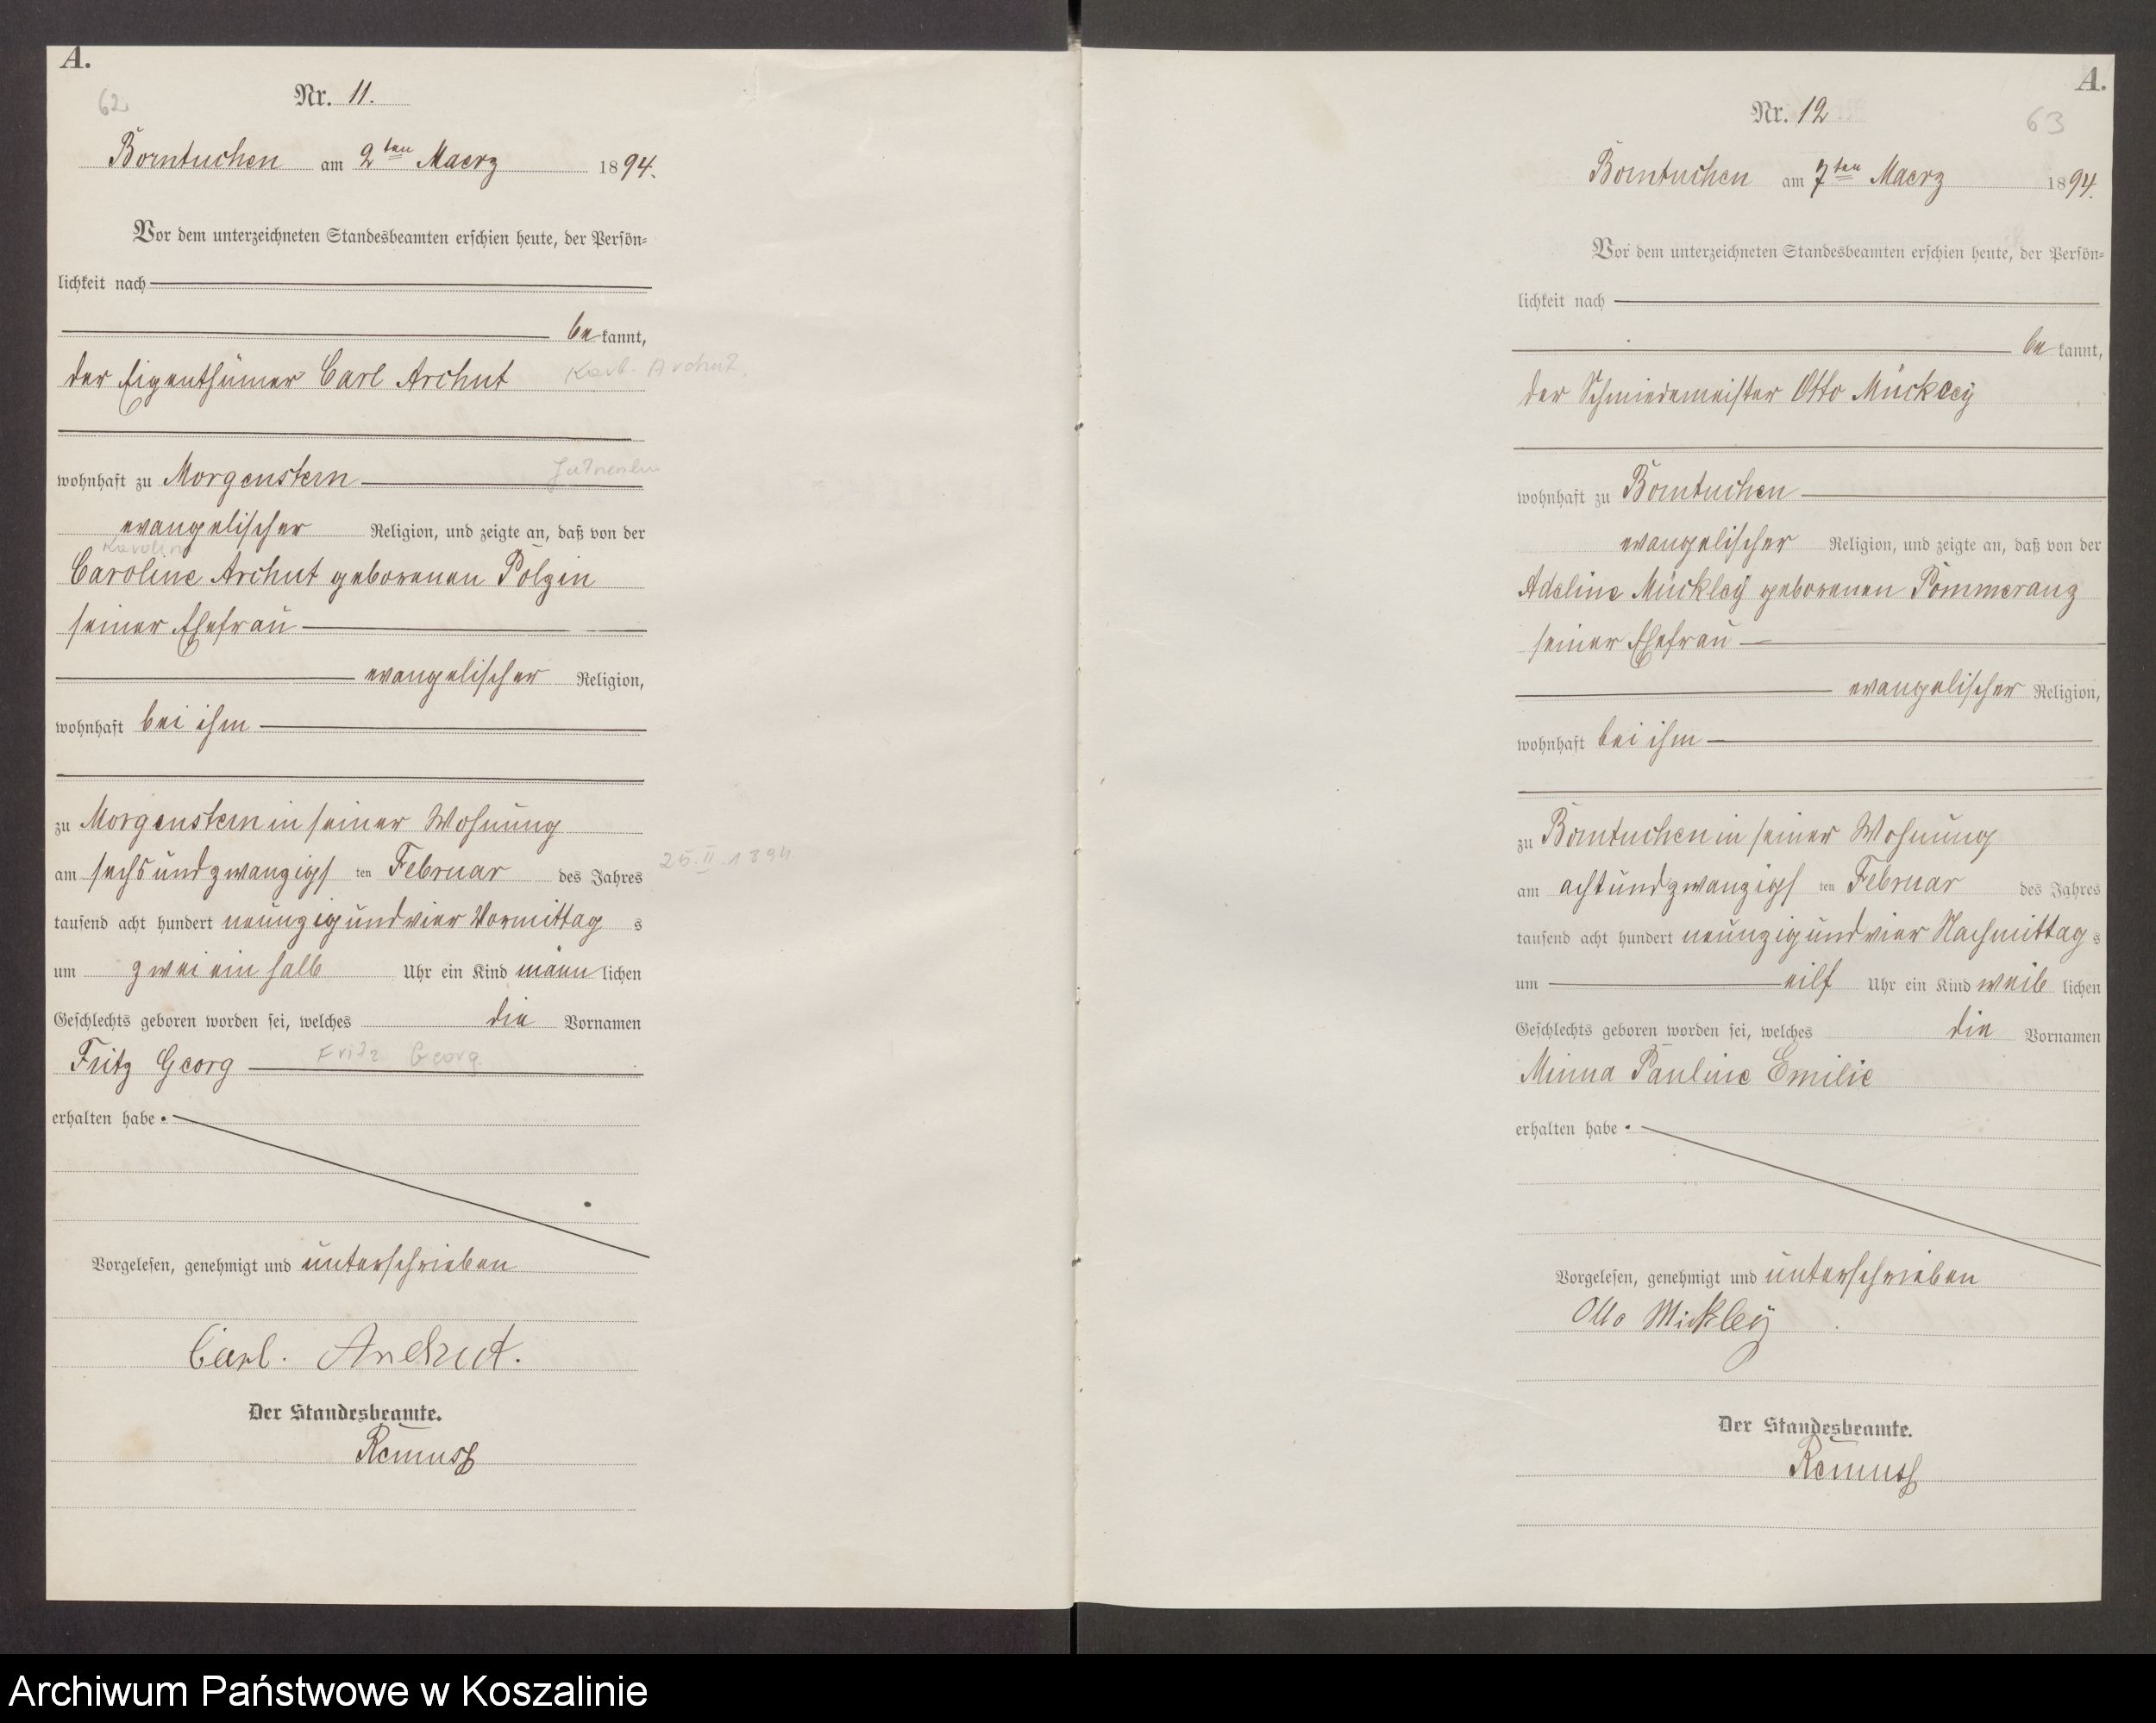 A.
62
Nr. 11.
Borntuchen am 2ten Maerz 1894.
Vor dem unterzeichneten Standesbeamten erschien heute, der Persön-
lichkeit nach
be kannt,
der Eigenthümer Carl Archut Karl Archut
wohnhaft zu Morgenstern
evangelischer Religion, und zeigte an, daß von der
Karolin
Caroline Archut geborenen Polzin
seiner Ehefrau
evangelischer Religion,
wohnhaft bei ihm
zu Morgenstern in seiner Wohnung
am sechsundzwanzigs ten Februar des Jahres 26.II.1894
tausend acht hundert neunzig und vier Vormittag s
um zwei ein halb Uhr ein Kind männ lichen
Geschlechts geboren worden sei, welches die Vornamen
Fritz Georg Fritz Georg
erhalten habe.
Vorgelesen, genehmigt und unterschrieben
Carl. Archut.
Der Standesbeamte.
Remuss
A.
Nr. 12
63
Borntuchen am 7ten Maerz 1894.
Vor dem unterzeichneten Standesbeamten erschien heute, der Persön-
lichkeit nach
be kannt,
der Schmiedemeister Otto Mückley
wohnhaft zu Borntuchen
evangelischer Religion, und zeigte an, daß von der
Adeline Mückley geborenen Pommeranz
seiner Ehefrau
evangelischer Religion,
wohnhaft bei ihm
zu Borntuchen in seiner Wohnung
am achtundzwanzigs ten Februar des Jahres
tausend acht hundert neunzig und vier Nachmittag s
um eilf Uhr ein Kind weib lichen
Geschlechts geboren worden sei, welches die Vornamen
Minna Pauline Emilie
erhalten habe.
Vorgelesen, genehmigt und unterschrieben
Otto Mickley
Der Standesbeamte.
Remuss
Archiwum Państwowe w Koszalinie